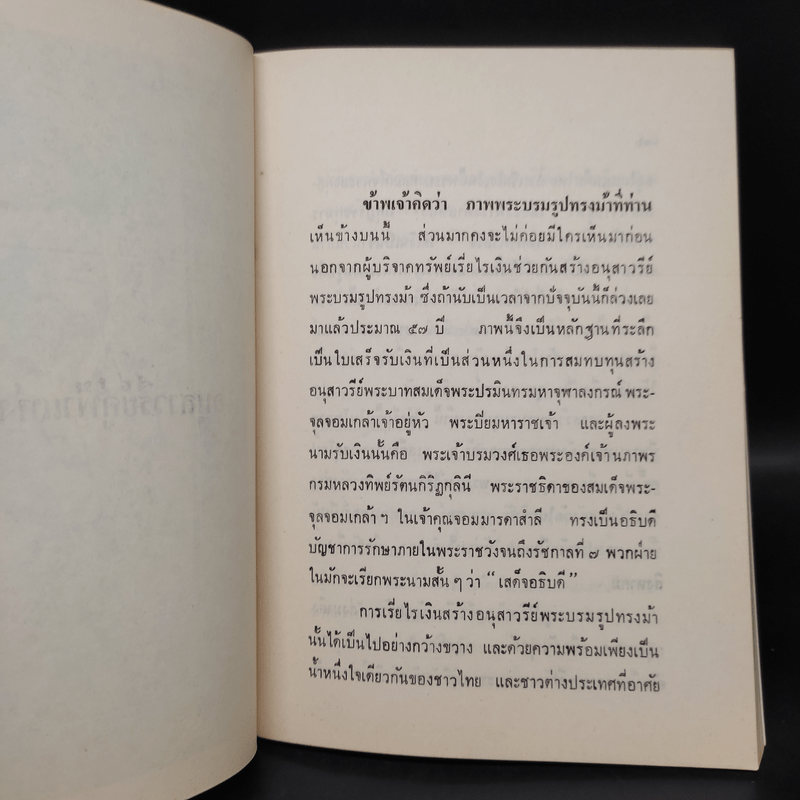 ข้าพเจ้าคิดว่า ภาพพระบรมรูปทรงม้าที่ท่าน
เห็นข้างบนนี้ ส่วนมากคงจะไม่ค่อยมีใครเห็นมาก่อน
นอกจากผู้บริจาคทรัพย์เรี่ยไรเงินช่วยกันสร้างอนุสาวรีย์
พระบรมรูปทรงม้า ซึ่งถ้านับเป็นเวลาจากปัจจุบันนี้ก็ล่วงเลย
มาแล้วประมาณ ๕๗ ปี ภาพนี้จึงเป็นหลักฐานที่ระลึก
เป็นใบเสร็จรับเงินที่เป็นส่วนหนึ่งในการสมทบทุนสร้าง
อนุสาวรีย์พระบาทสมเด็จพระปรมินทรมหาจุฬาลงกรณ์ พระ-
จุลจอมเกล้าเจ้าอยู่หัว พระปิยมหาราชเจ้า และผู้ลงพระ
นามรับเงินนั้นคือ พระเจ้าบรมวงศ์เธอพระองค์เจ้านภาพร
กรมหลวงทิพย์รัตนกิริฏกุลินี พระราชธิดาของสมเด็จพระ-
จุลจอมเกล้า ฯ ในเจ้าคุณจอมมารดาสำลี ทรงเป็นอธิบดี
บัญชาการรักษาภายในพระราชวังจนถึงรัชกาลที่ ๗ พวกฝ่าย
ในมักจะเรียกพระนามสั้น ๆ ว่า “ เสด็จอธิบดี ”
การเรี่ยไรเงินสร้างอนุสาวรีย์พระบรมรูปทรงม้า
นั้นได้เป็นไปอย่างกว้างขวาง และด้วยความพร้อมเพียงเป็น
น้ำหนึ่งใจเดียวกันของชาวไทย และชาวต่างประเทศที่อาศัย